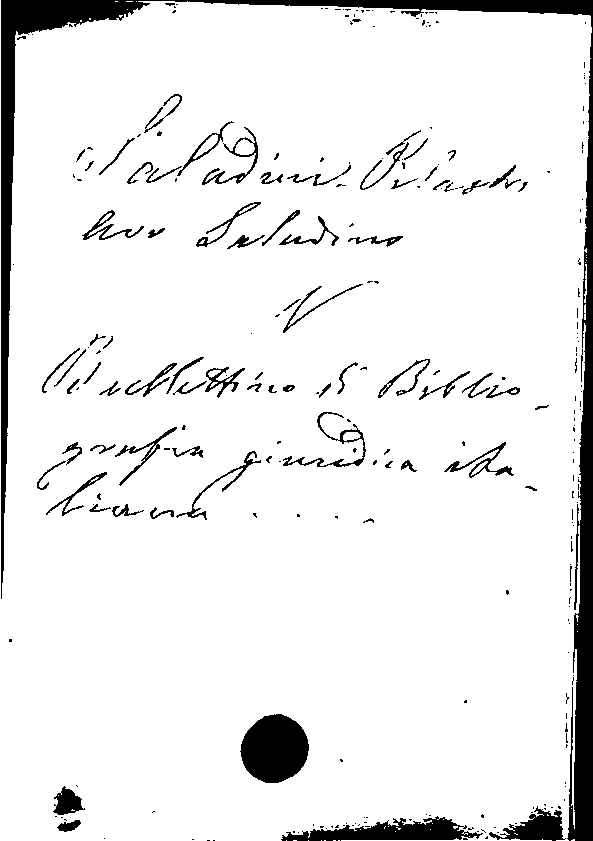 Saladini-Pilastri
Avv Saladino
V
Bullettino di Biblio-
grafia giuridica ita-
liana . . . .